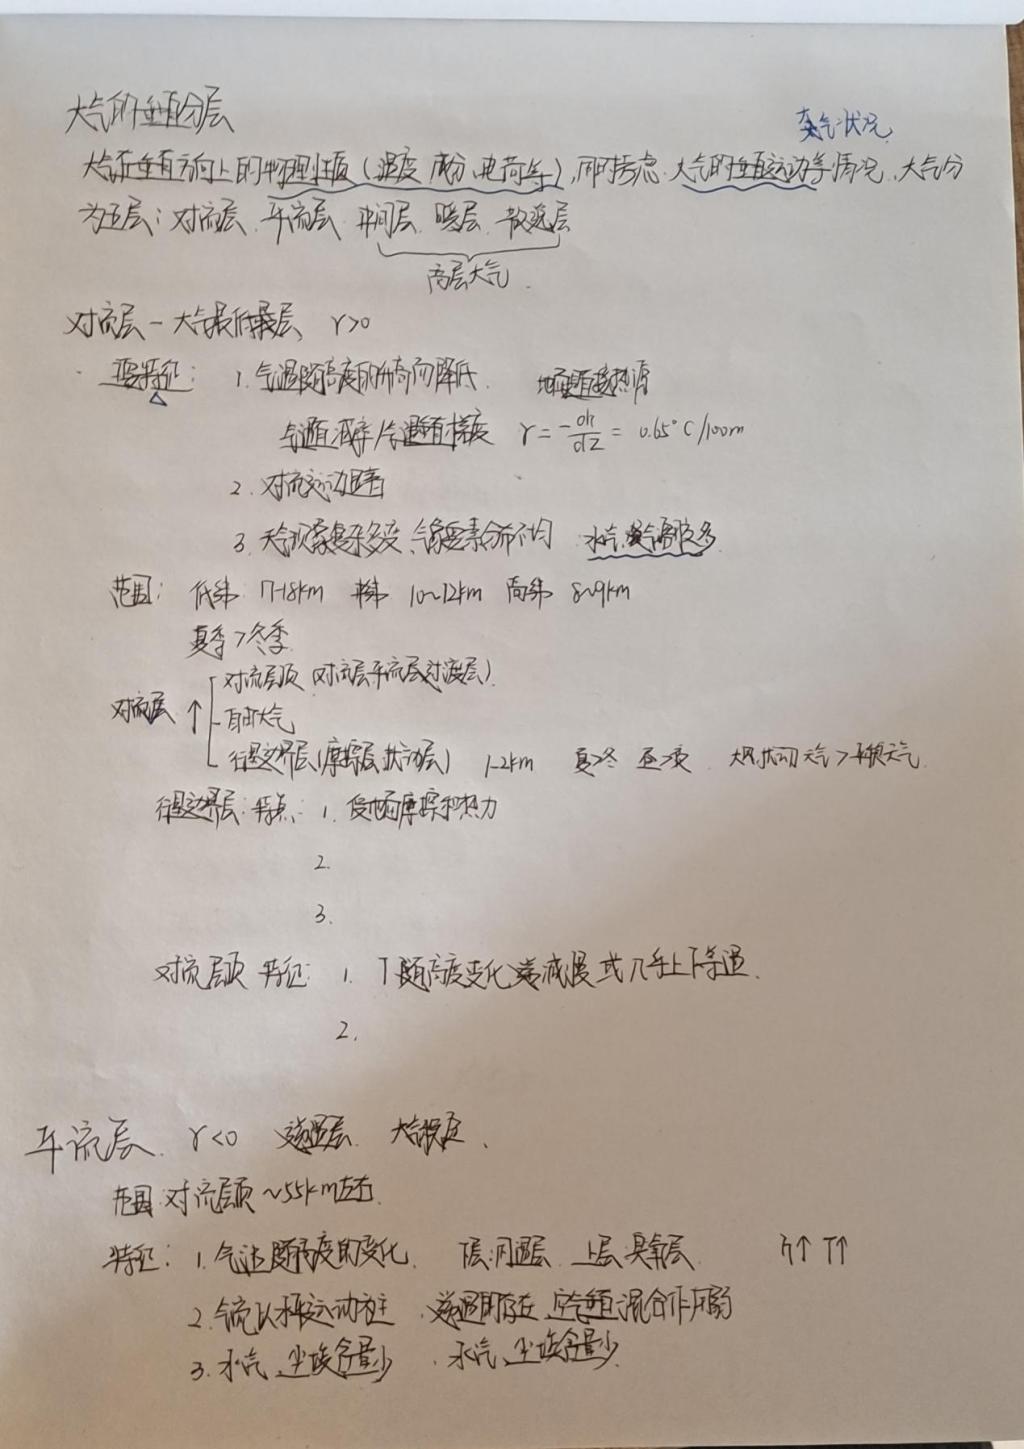 大气的垂直分层
天气状况
大气在垂直方向上的物理性质（温度 成分、电荷等），同时考虑 大气的垂直运动等情况、大气分
为五层：对流层、平流层、中间层、暖层、散逸层
高层大气
对流层-大气最低层、γ>0
主要特征： 1. 气温随高度的升高而降低. 地面是直接热源
气温直减率/气温垂直梯度 γ=-dt/dZ= 0.65°C/100m
2. 对流运动显著
3. 天气现象复杂多变、气象要素分布不均 水汽、
范围： 低纬 17-18km 中纬 10~12km 高纬 8~9km
夏季>冬季
对流层顶（对流层平流层过渡层）
对流层 ↑ 自由大气
行星边界层（摩擦层、扰动层） 1-2km 夏>冬 昼>夜 大风扰动天气>平稳天气
行星边界层：特点： 1. 受地面摩擦和热力
2.
3.
对流层顶 特征： 1. T随高度变化 减慢 或 几乎上下等温
2.
平流层、γ<0 逆温层、大气稳定、
范围：对流层顶~55km左右
特征： 1. 气温随高度的变化、 下层:同温层 上层:臭氧层 h↑ T↑
2. 气流以水平运动为主 逆温的存在、空气垂直混合作用弱
3. 水汽、尘埃含量少 、水汽、尘埃含量少.